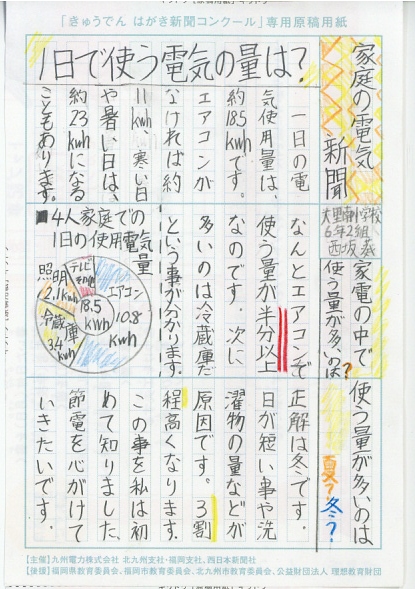 「きゅうでん はがき新聞コンクール」専用原稿用紙
家庭の電気新聞
大里南小学校
6年2組
1日で使う電気の量は?
一日の電
気使用量は、
約18.5kwhです。
エアコンが
なければ約
11kwh、寒い日
や暑い日は、
約23kwhになる
こともあります。
家電の中で
使う量が多いのは?
なんとエアコンで
使う量が半分以上
なのです。次に
多いのは冷蔵庫だ
という事が分かります。
■4人家庭での
1日の使用電気量
エアコン
10.8
kwh
冷蔵庫
3.4
kwh
照明
2.1kwh
テレビ
その他
18.5
kwh
使う量が多いのは
夏?冬?
正解は冬です。
日が短い事や洗
濯物の量などが
原因です。3割
程高くなります。
この事を私は初
めて知りました。
節電を心がけて
いきたいです。
【主催】九州電力株式会社 北九州支社・福岡支社、西日本新聞社
【後援】福岡県教育委員会、福岡市教育委員会、北九州市教育委員会、公益財団法人 理想教育財団